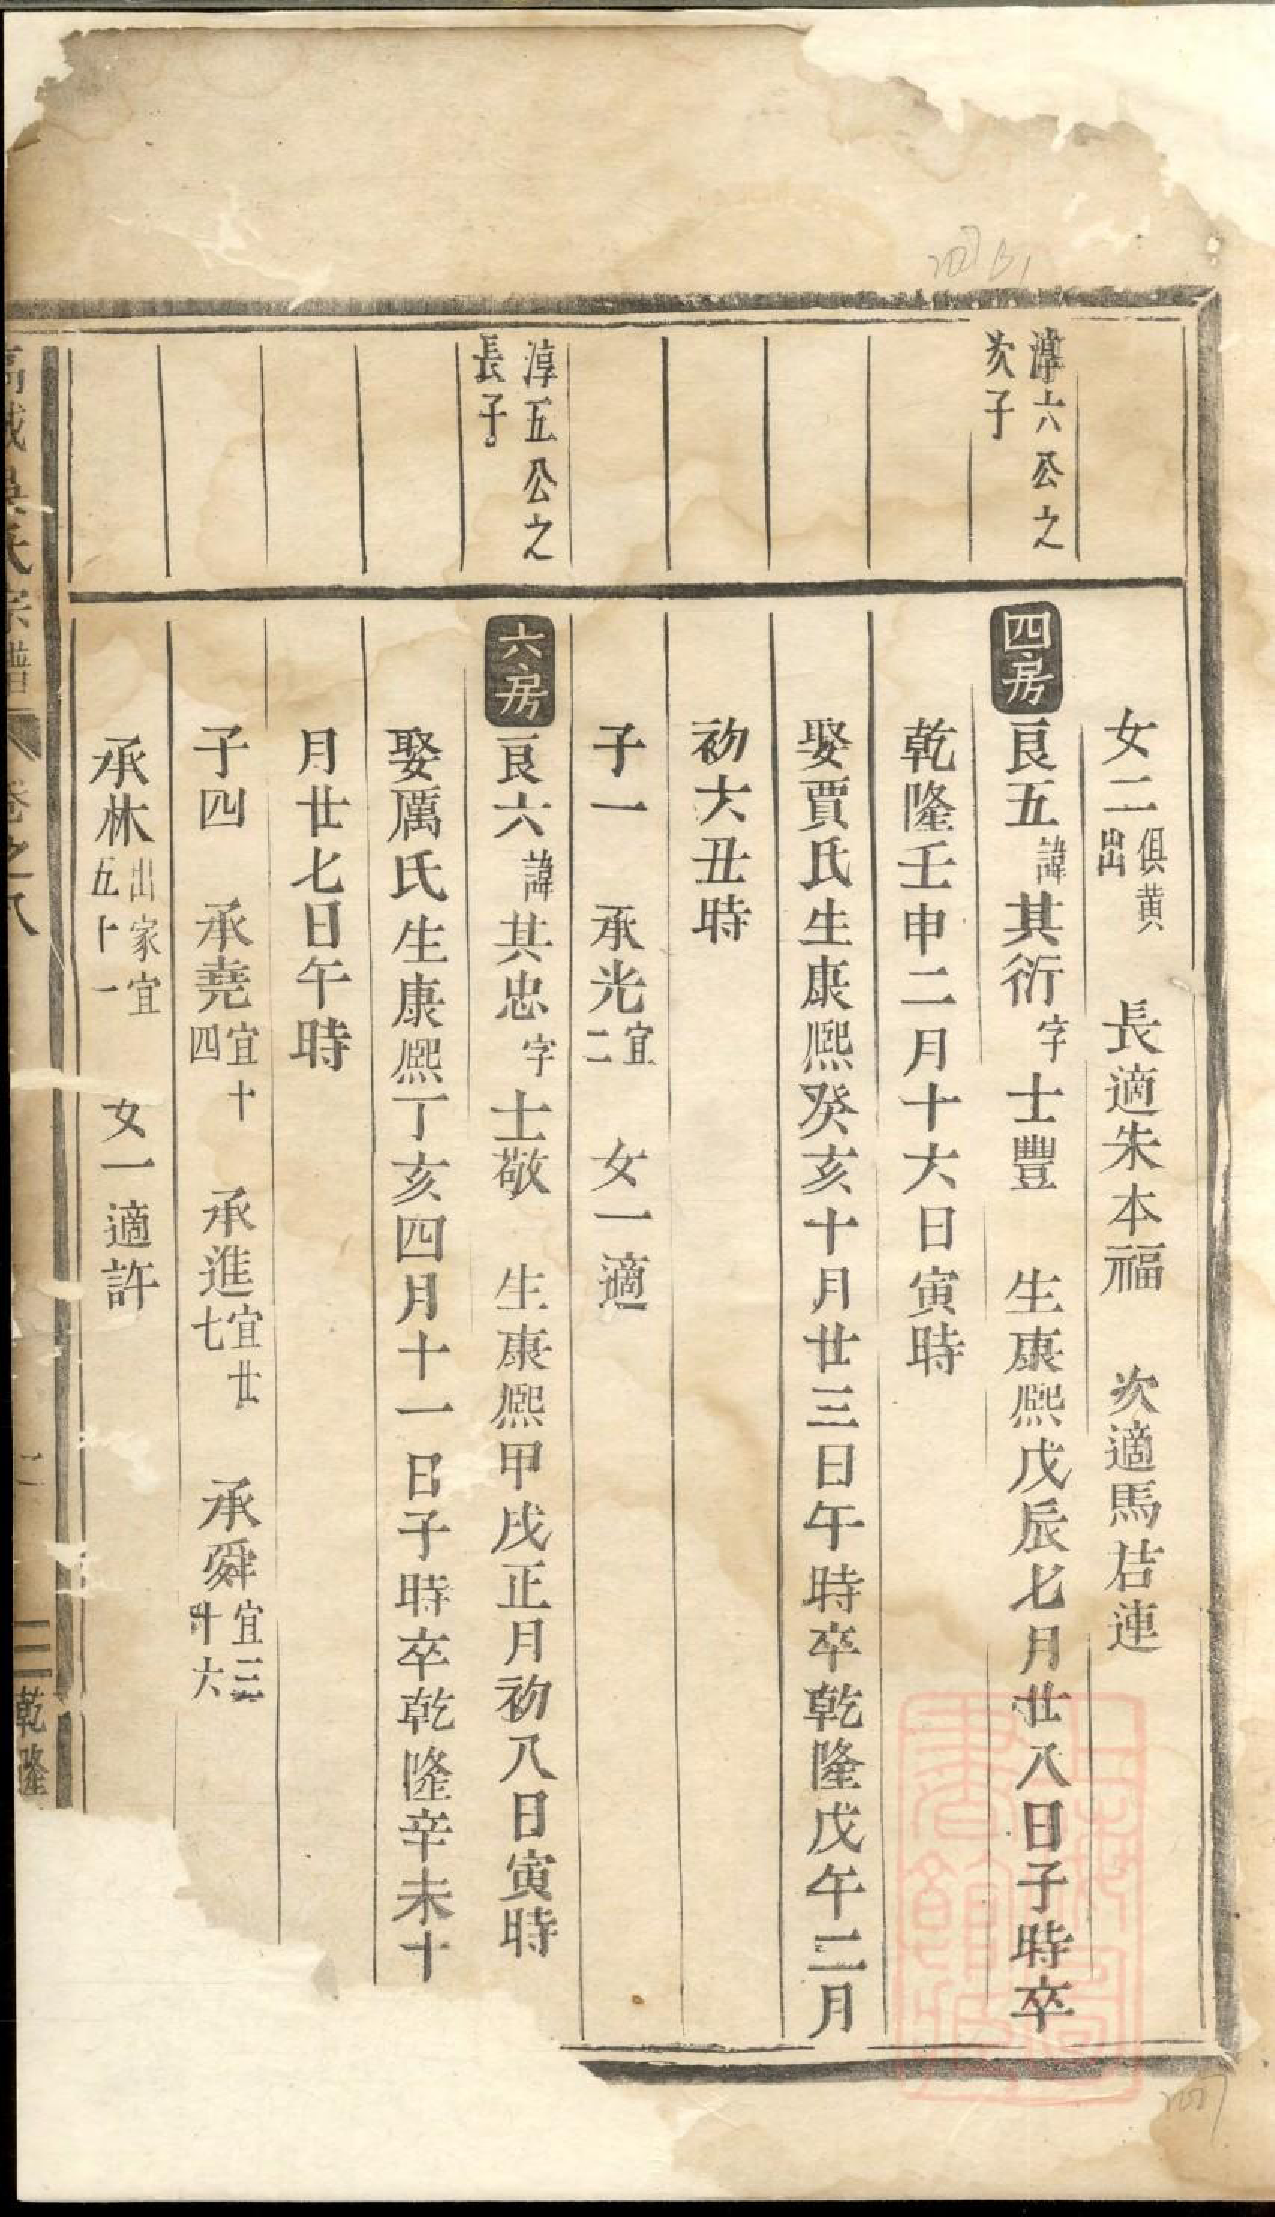 女二俱黃出 長適朱本福 次適馬𠮷連
淳六公之次子
四房 良五諱其衍字士豐 生康熙戊辰七月廿八日子時卒
乾隆壬申二月十六日寅時
娶賈氏生康熙癸亥十月廿三日午時卒乾隆戊午二月
初六丑時
子一 承光宜二 女一適
淳五公之長子
六房 良六諱其忠字士敬 生康熙甲戌正月初八日寅時
娶厲氏生康熙丁亥四月十一日子時卒乾隆辛未十
月廿七日午時
子四 承堯宜十四 承進宜廿七 承舜宜三十六
承林出家宜五十一 女一適許
吳氏宗譜 卷之八 二 三 乾隆